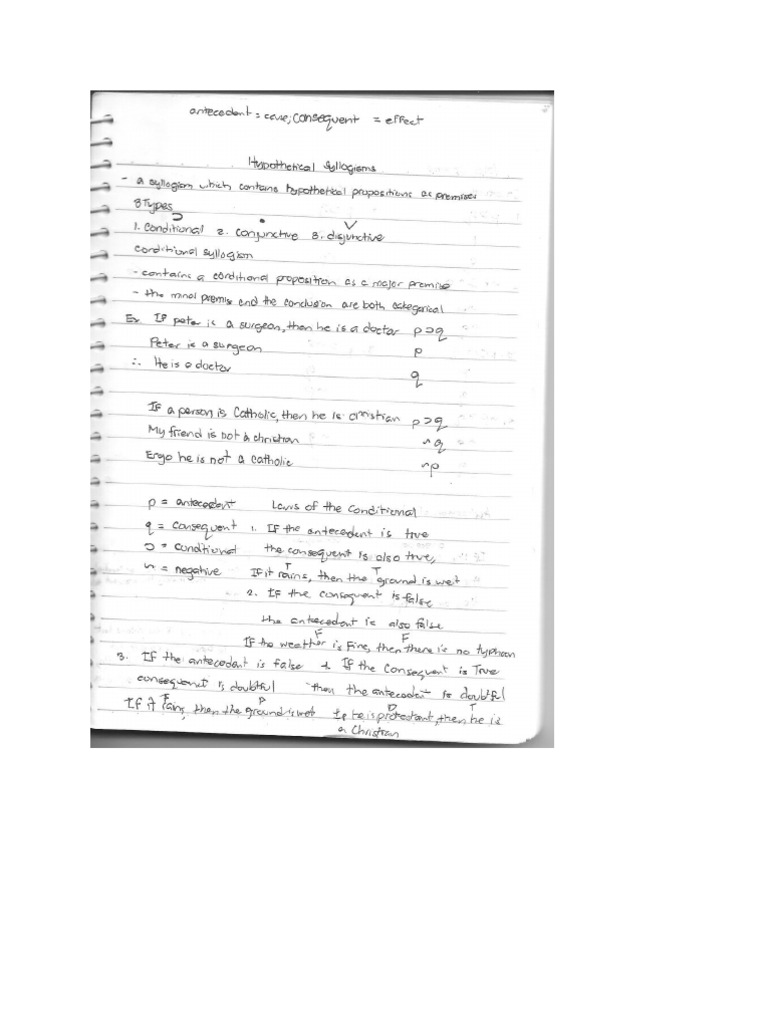 antecedent = cause; consequent = effect
Hypothetical Syllogisms
- a syllogism which contains hypothetical propositions as premises
3 Types
⊃ • ∨
1. Conditional 2. conjunctive 3. disjunctive
conditional syllogism
- contains a conditional proposition as a major premise
- the minor premise and the conclusion are both categorical
Ex. If peter is a surgeon, then he is a doctor p⊃q
Peter is a surgeon p
∴ He is a doctor q
If a person is Catholic, then he is christian p⊃q
My friend is not a christian ~q
Ergo he is not a catholic ~p
p = antecedent Laws of the Conditional
q = consequent 1. If the antecedent is true
⊃ = conditional the consequent is also true,
T T
~ = negative If it rains, then the ground is wet
2. If the consequent is false
the antecedent is also false
F F
If the weather is fine, then there is no typhoon
3. If the antecedent is false If the Consequent is True
consequent is doubtful then the antecedent is doubtful
F D D T
If it rains, then the ground is wet If he is protestant, then he is
a Christian